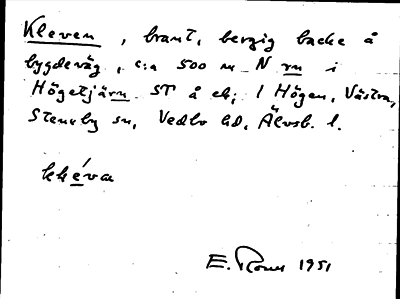 Kleven, brant, bergig backe å
bygdeväg, c:a 500 m N rn i
Högetjärn ST å ek; 1 Högen, Västra,
Steneby sn, Vedbo hd, Älvsb. l.
E. 1951